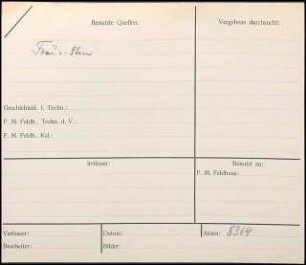 Benutzte Quellen:
Vergebens durchsucht:
Frau v. Stein
Geschichtsbl. f. Techn.:
F. M. Feldh., Techn. d. V.:
F. M. Feldh., Kal.:
Irrtümer:
Benutzt zu:
F. M. Feldhaus:
Verfasser:
Datum:
Akten: 8364
Bearbeiter:
Bilder: